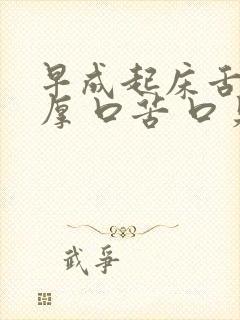 早成起床舌
厚口苦口臭
武争